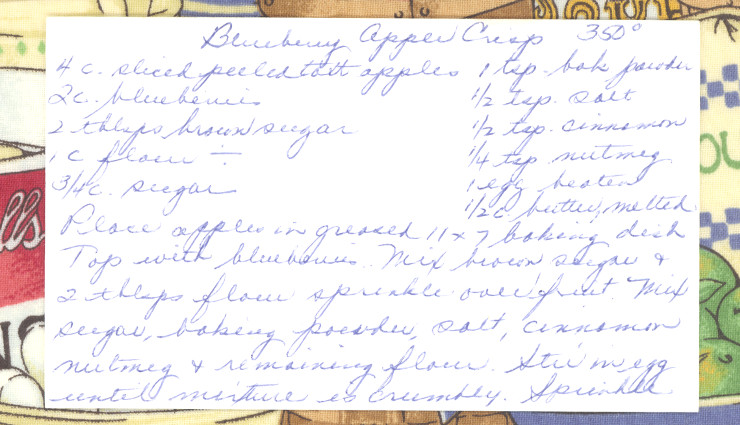 Blueberry Apple Crisp 350°
4 c. sliced peeled tart apples 1 tsp. bak powder
2 c. blueberries 1/2 tsp. salt
2 tblsps brown sugar 1/2 tsp. cinnamon
1 c flour ÷ 1/4 tsp nutmeg
3/4 c. sugar 1 egg beaten
1/2 c butter, melted.
Place apples in greased 11 x 7 baking dish
Top with blueberries. Mix brown sugar &
2 tblsps flour sprinkle over fruit. Mix
sugar, baking powder, salt, cinnamon
nutmeg & remaining flour. Stir in egg
until mixture is crumbly. Sprinkle